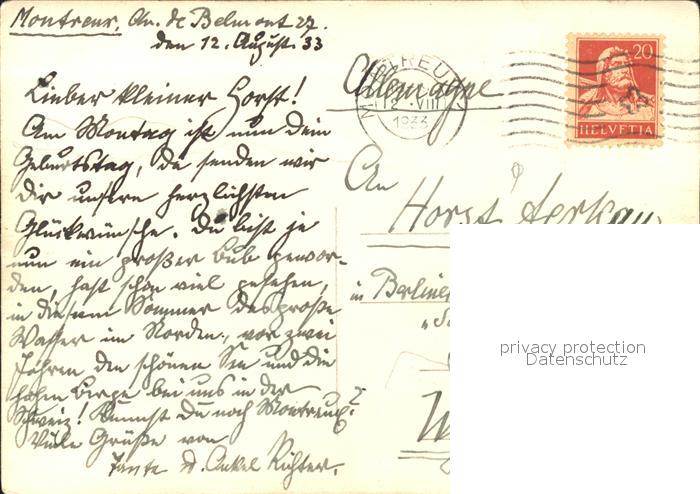 Montreux, Av. de Belmont 27.
den 12. August 33
Lieber kleiner Horst!
Am Montag ist nun dein
Geburtstag, da senden wir
dir unsere herzlichsten
Glückwünsche. Du bist ja
nun ein großer Bub gewor-
den, hast schon viel gesehen,
in diesem Sommer das große
Wasser im Norden, vor zwei
Jahren den schönen See und die
hohen Berge bei uns in der
Schweiz! Kennst Du noch Montreux?
Viele Grüße von
Tante u. Onkel Richter.
MONTREUX
12. VIII
1933
20
HELVETIA
Allemagne
An
Horst
in Berliner
privacy protection
Datenschutz